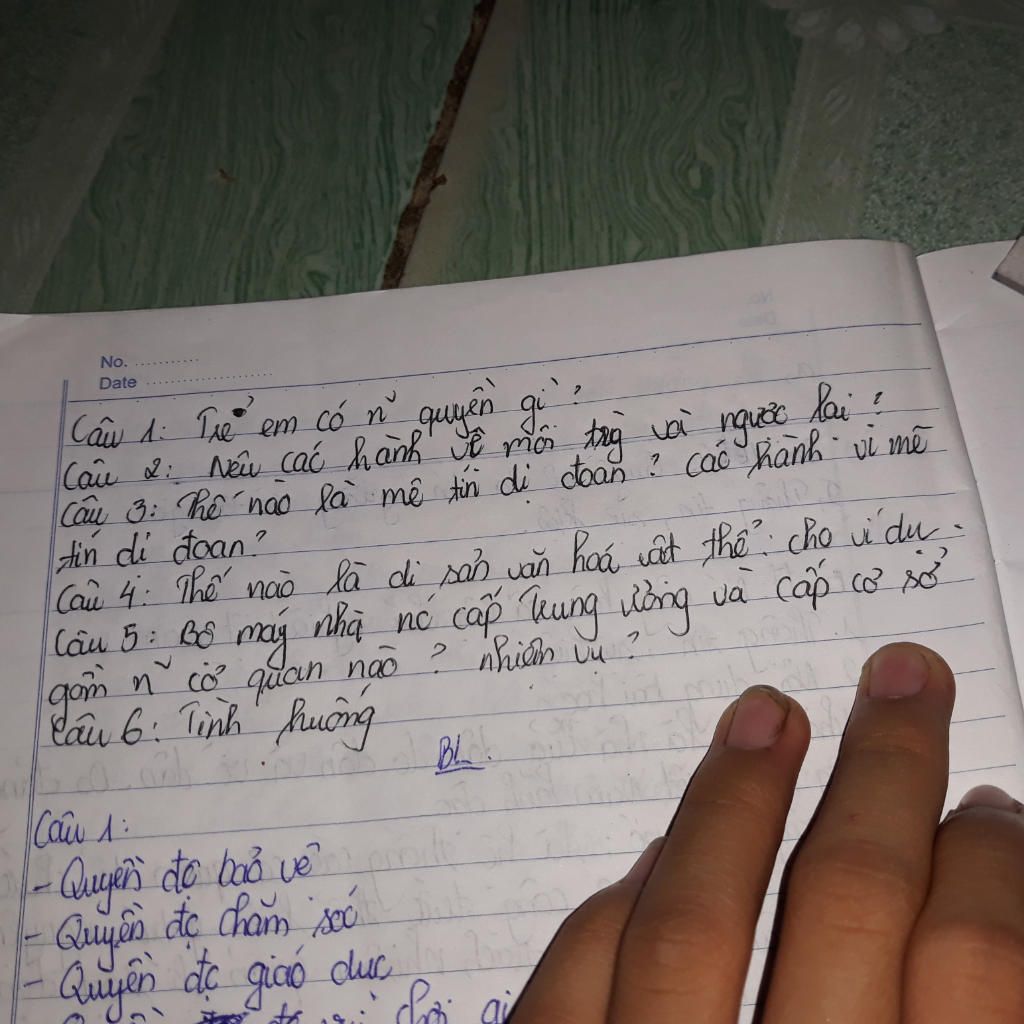 No. ...........
Date .....................
Câu 1: Trẻ em có n~ quyền gì?
Câu 2: Nêu các hành về môi trg và ngược lại?
Câu 3: Thế nào là mê tín dị đoan? Các hành vi mê
tín dị đoan?
Câu 4: Thế nào là di sản văn hoá vật thể? cho ví dụ.
Câu 5: Bộ máy nhà nc cấp trung ương và cấp cơ sở
gồm n~ cơ quan nào? nhiệm vụ?
Câu 6: Tình huống
BL.
Câu 1:
- Quyền đc bảo vệ
- Quyền đc chăm sóc
- Quyền đc giáo dục
Quyền đc vui chơi gi